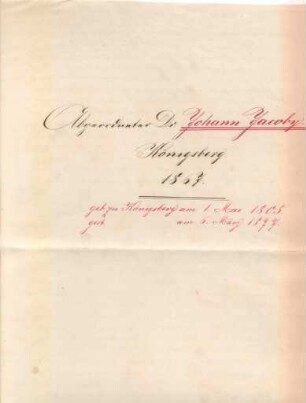 Abgeordneter Dr Johann Jacoby.
Königsberg
1867.
geb. zu Königsberg am 1. Mai 1805
gest. am 6. März 1877